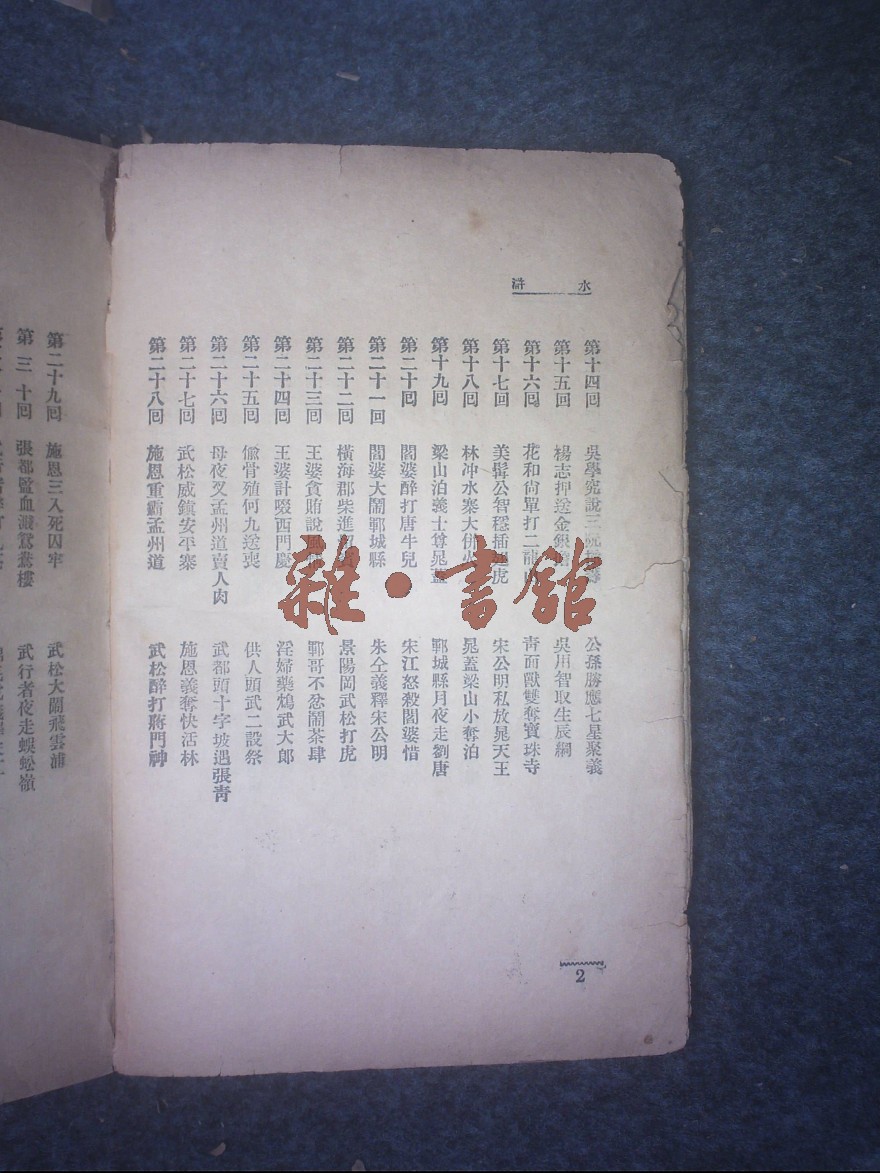 水滸
第十四回 吳學究說三 公孫勝應七星聚義
第十五回 楊志押送金銀 吳用智取生辰綱
第十六回 花和尚單打二龍 青面獸雙奪寶珠寺
第十七回 美髯公智穩插翅虎 宋公明私放晁天王
第十八回 林冲水寨大併火 晁蓋梁山小奪泊
第十九回 梁山泊義士尊晁蓋 鄆城縣月夜走劉唐
第二十回 閻婆醉打唐牛兒 宋江怒殺閻婆惜
第二十一回 閻婆大鬧鄆城縣 朱仝義釋宋公明
第二十二回 橫海郡柴進留賓 景陽岡武松打虎
第二十三回 王婆貪賄說風情 鄆哥不忿鬧茶肆
第二十四回 王婆計啜西門慶 淫婦藥鴆武大郎
第二十五回 偸骨殖何九送喪 供人頭武二設祭
第二十六回 母夜叉孟州道賣人肉 武都頭十字坡遇張青
第二十七回 武松威鎮安平寨 施恩義奪快活林
第二十八回 施恩重霸孟州道 武松醉打蔣門神
2
第二十九回 施恩三入死囚牢 武松大鬧飛雲浦
第三十回 張都監血濺鴛鴦樓 武行者夜走蜈蚣嶺
雜·書館